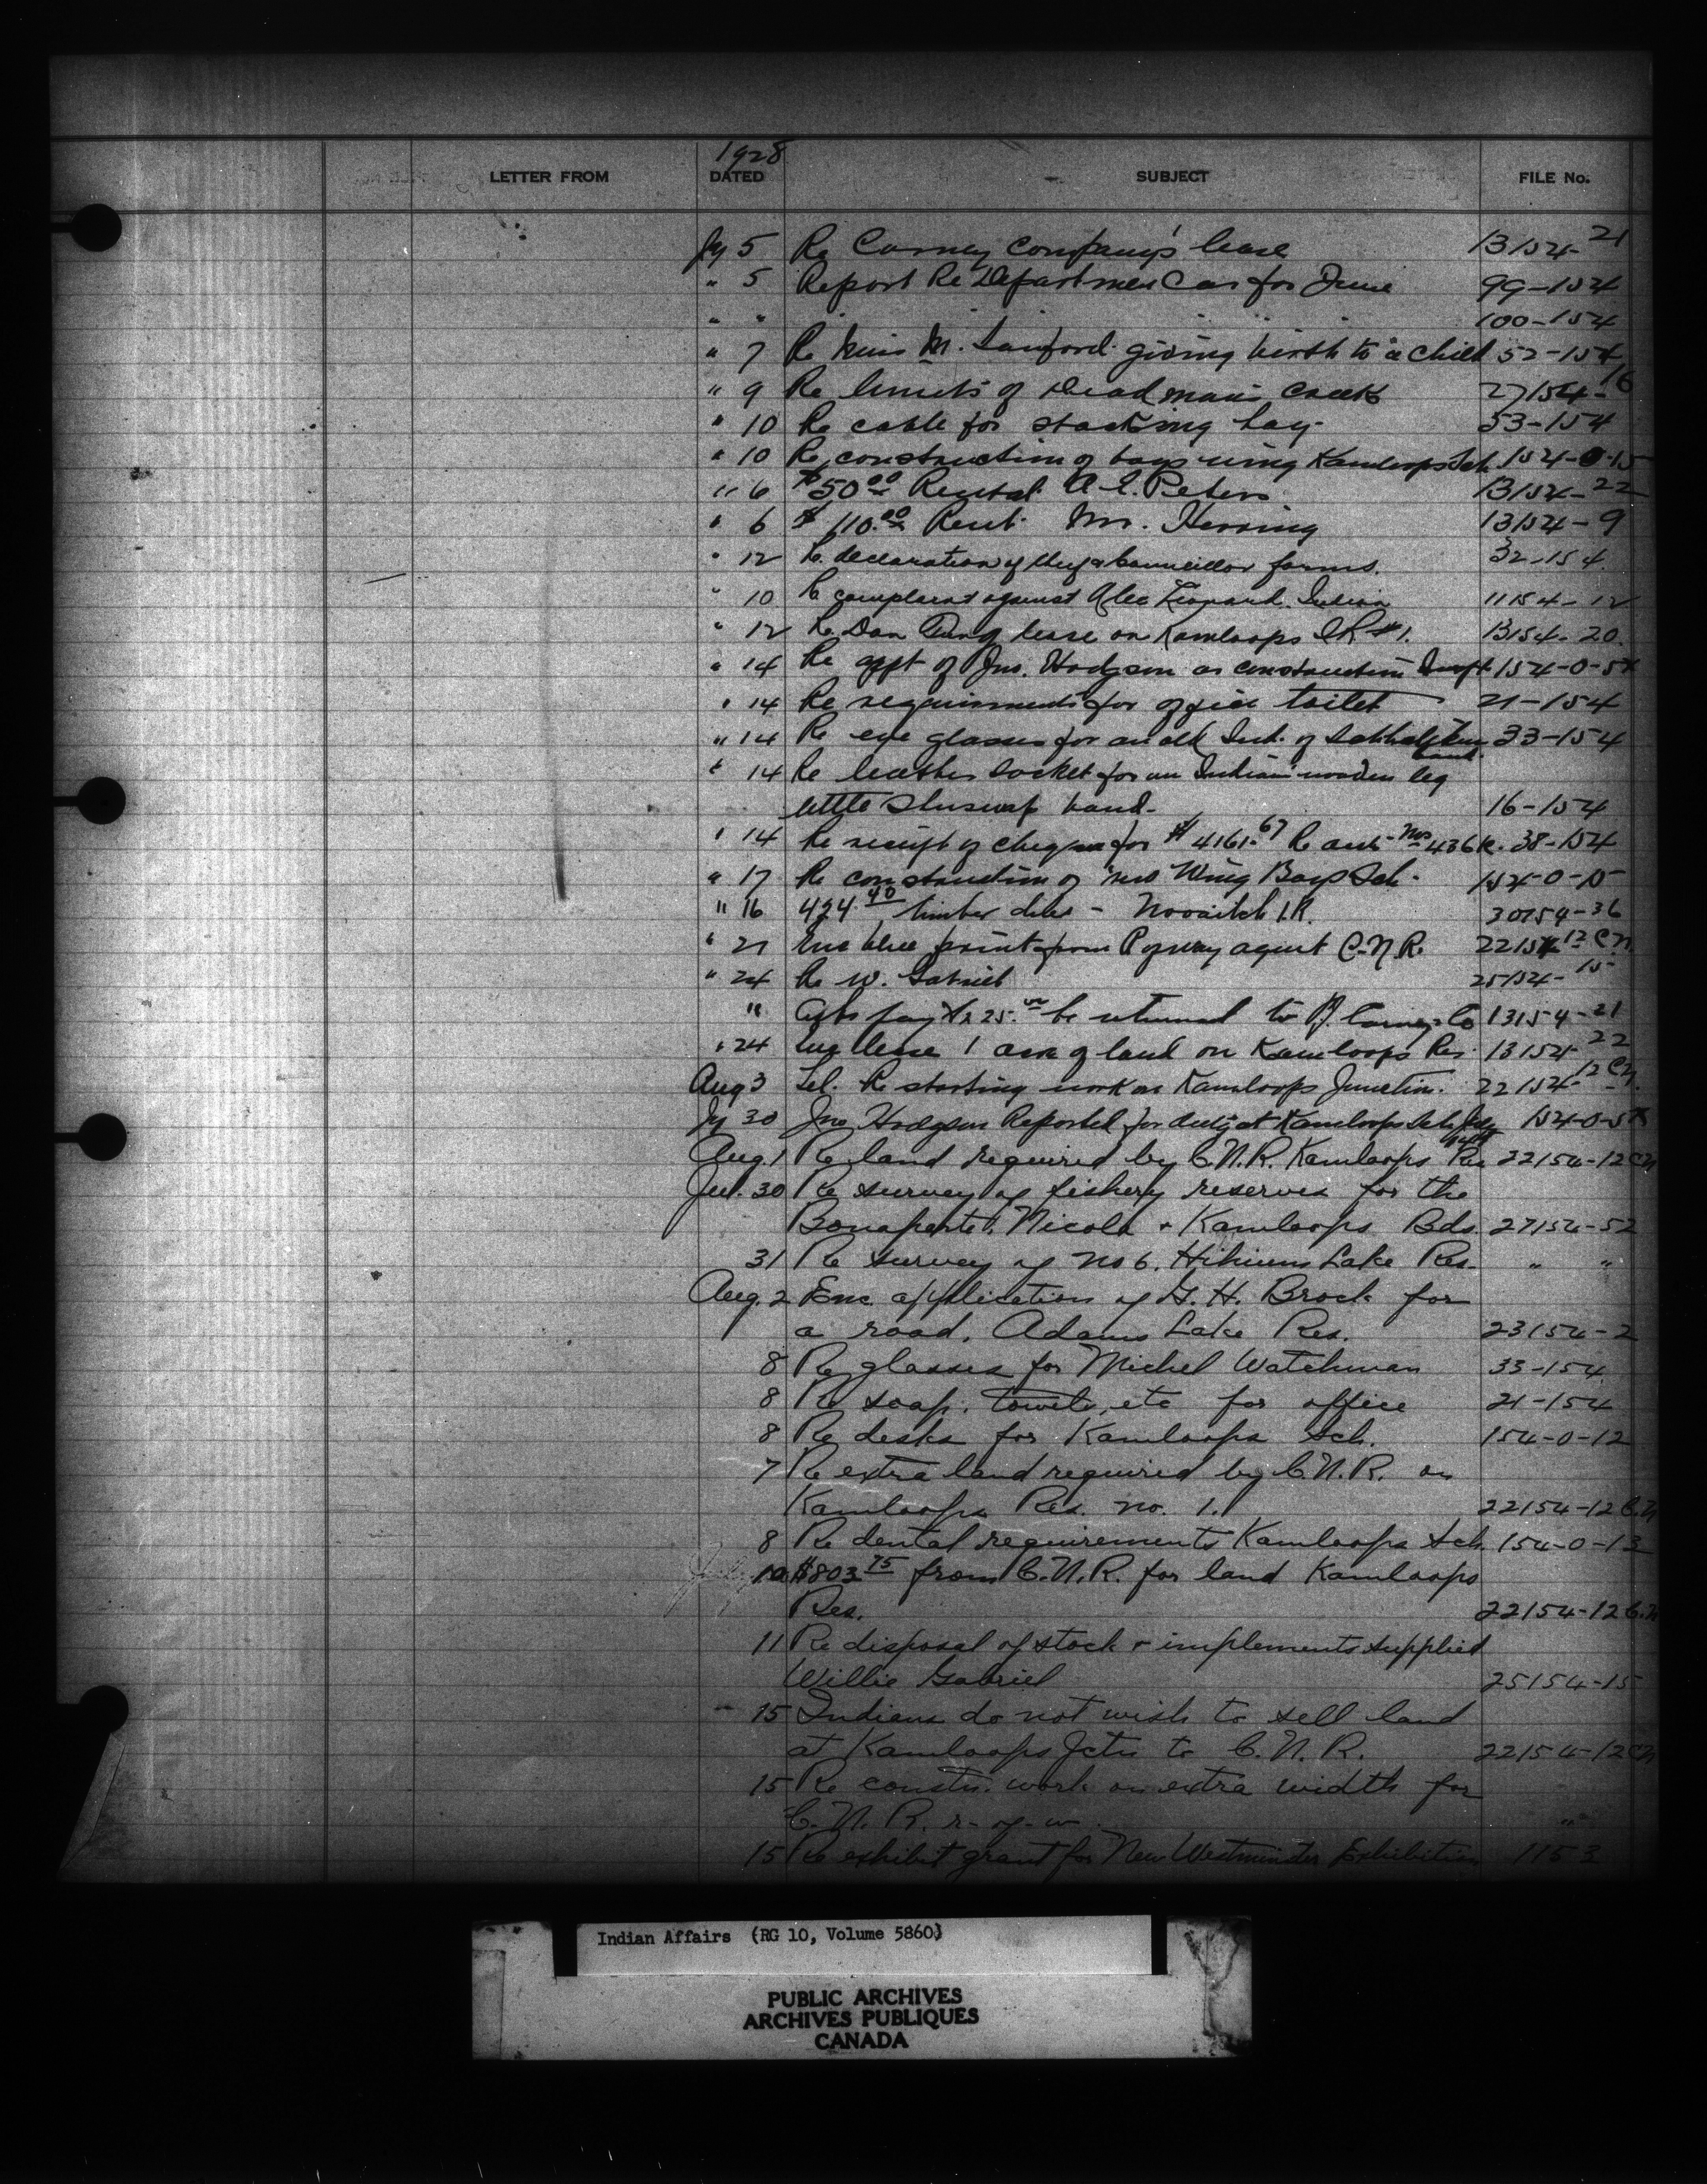 1928
LETTER FROM DATED SUBJECT FILE No.
Jy 5 Re Carney Company's lease 13154-21
" 5 Report Re Departmen Car for June 99-154
" " " " " 100-154
" 7 Re Miss M. Sanford giving birth to a child 52-154
" 9 Re limits of Deadmans Creek 27154-16
" 10 Re cable for stacking hay 53-154
" 10 Re construction of boys wing Kamloops Sch. 154-0-15
" 6 $50.00 Rental A. E. Peters 13154-22
" 6 $110.00 Rent. Mr. Herring 13154-9
" 12 Re declaration of Chief & Councillor forms. 32-154
" 10 Re complaint against Alec Leonard. Indian 11154-12
" 12 Re Dan lease on Kamloops I.R #1. 13154-20
" 14 Re appt of Jno. Hodgson as construction 154-0-5
" 14 Re requirements for office toilet 21-154
" 14 Re eye glasses for an old Ind. of band. 33-154
" 14 Re leather socket for an Indian wooden leg
little Shuswap band. 16-154
" 14 Re receipt of cheques for $4161.67 Re Nos 436 38-154
" 17 Re construction of new Wing Boys Sch. 154-0-15
" 16 424.40 timber dues - Nooaitch I.R. 30154-36
" 21 Enc blue print from R of way agent C.N.R. 22154-12 CN
" 24 Re W. Gabriel 25154-15
" Asks pay $225.00 be returned to Carney Co 13154-21
" 24 Enc lease 1 acre of land on Kamloops Res. 13154-22
Aug 3 Tel. Re starting work on Kamloops Junction. 22154-12 CN.
Jy 30 Jno Hodgson Reported for duty at Kamloops Sch. 154-0-5
Aug. 1 Re land required by C.N.R. Kamloops Res 22154-12 CN
Jul. 30 Re survey of fishery reserves for the
Bonaparte, Nicola + Kamloops Bds. 27154-52
31 Re survey of no 6. Hihium Lake Res. " "
Aug. 2 Enc. application of G. H. Brock for
a road, Adams Lake Res. 23154-2
8 Re glasses for Michel Watchman 33-154
8 Re soap, towels, etc for office 21-154
8 Re desks for Kamloops Sch. 154-0-12
7 Re extra land required by C.N.R. on
Kamloops Res. no. 1. 22154-12 C.N
8 Re dental requirements Kamloops Sch. 154-0-13
July 10 $803.75 from C.N.R. for land Kamloops
Res. 22154-12 C.N
11 Re disposal of stock + implements supplied
Willie Gabriel 25154-15
15 Indians do not wish to sell land
at Kamloops Jctn to C.N.R. 22154-12 CN
15 Re constn. work on extra width for
C.N.R. r-of-w. "
15 Re exhibit grant for New Westminster Exhibition 1153
Indian Affairs (RG 10, Volume 5860)
PUBLIC ARCHIVES
ARCHIVES PUBLIQUES
CANADA